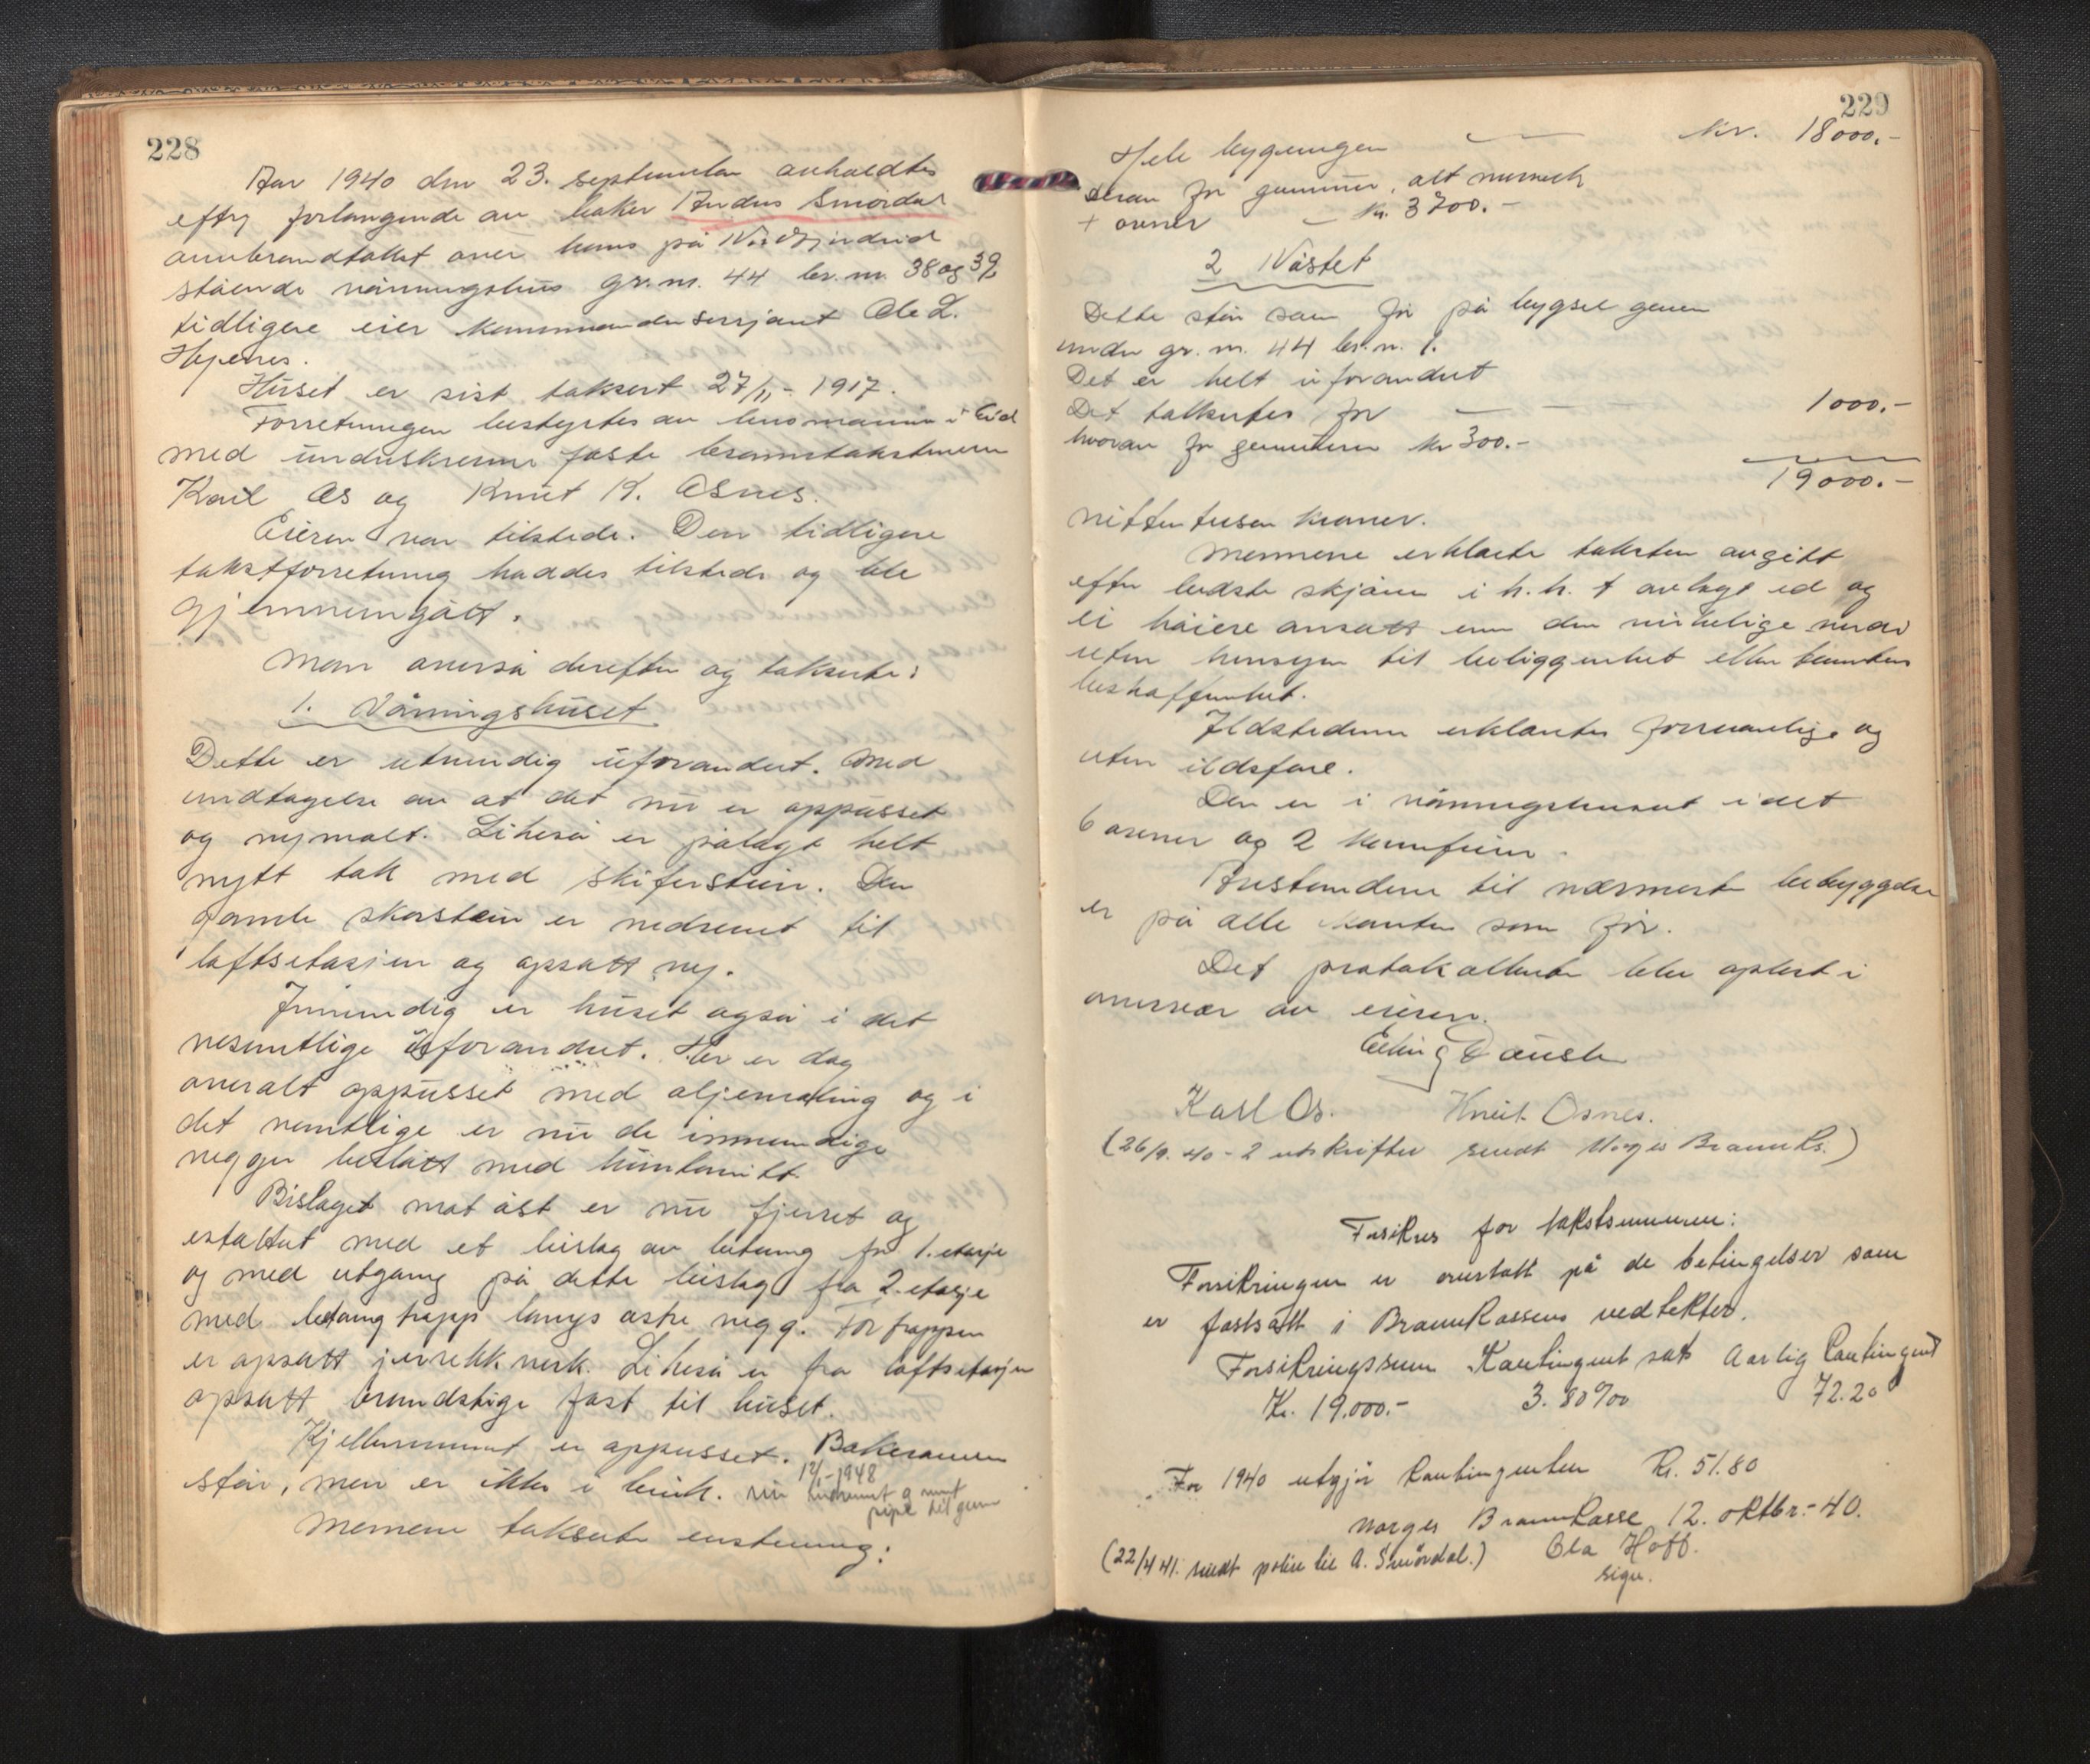 228
Aar 1940 den 23. september anholdtes
efter forlangende av baker Andus Smørdal
omnbrandtakst over hans på Nordfjordeid
stående våningshus gr. nr. 44 br. nr. 38 og 39
tidligere eier kommandersersjant Ole L.
Hjelnes.
Huset er sist taksert 27/11 - 1917.
Forretningen bestyrtes av lensmannen i Eid
med underskrevne faste branntakstmenn
Karl Os og Knut K. Osnes.
Eieren var tilstede. Den tidligere
takstforretning haddes tilstede og ble
gjennemgått.
Man overså derefter og takserte:
1. Våningshuset
Dette er utvendig uforandret. Med
undtagelse av at det nu er oppusset
og nymalt. Likeså er pålagt helt
nytt tak med skiferstein. Den
gamle skorstein er nedrevet til
loftsetasjen og opsatt ny.
Innvendig er huset også i det
vesentlige uforandret. Her er dog
overalt oppusset med oljemaling og i
det vesentlige er nu de innvendige
vegger beslått med huntonitt.
Bislaget mot øst er nu fjernet og
estattet med et bislag av betong for 1. etasje
og med utgang på dette bislag fra 2. etasje
med betong trapp langs østre vegg. For trappen
er opsatt jernrekkverk. Likeså er fra loftsetasjen
opsatt brandstige fast til huset.
Kjellerrummet er oppusset. Bakerovnen
står, men er ikke i bruk. nu
12/1-1948
nedrevet og murt
pipe til grunn
Mennene takserte enstemmig:
229
Hele bygningen — Kr. 18000.-
derav for grunnmur, alt murverk
+ ovner — Kr. 3700.-
2 Nøstet
Dette står som før på bygsel grunn
under gr. nr. 44 br. nr. 1.
Det er helt uforandret
Det takseres for — — 1000.-
hvorav for grunnmuren kr 300.-
19000.-
nitten tusen kroner.
Mennene erklærte taksten avgitt
efter bedste skjønn i h. h. t avlagt ed og
ei høiere ansatt enn den virkelige verdi
uten hensyn til beliggenhet eller tomtens
beskaffenhet.
Ildstedene erklærtes forsvarlige og
uten ildsfare.
Der er i våningshuset i det
6 ovner og 2 komfurer.
Avstandene til nærmeste bebyggelse
er på alle kanter som før.
Det protokollerte blev oplest i
overvær av eieren.
Elling Daustu
Karl Os. Knut Osnes.
(26/9. 40 - 2 utskrifter sendt Norges Brannks.)
Forsikres for takstsummen:
Forsikringen er overtatt på de betingelser som
er fastsatt i Brannkassens vedtekter.
Forsikringssum Kontingent sats Aarlig kontingent
Kr. 19.000.- 3.80 ‰ 72.20
For 1940 utgjør kontingenten Kr. 51.80
Norges Brannkasse 12. oktbr. - 40.
Ola Hoff.
sign.
(22/4 41. sendt polise til A. Smørdal.)